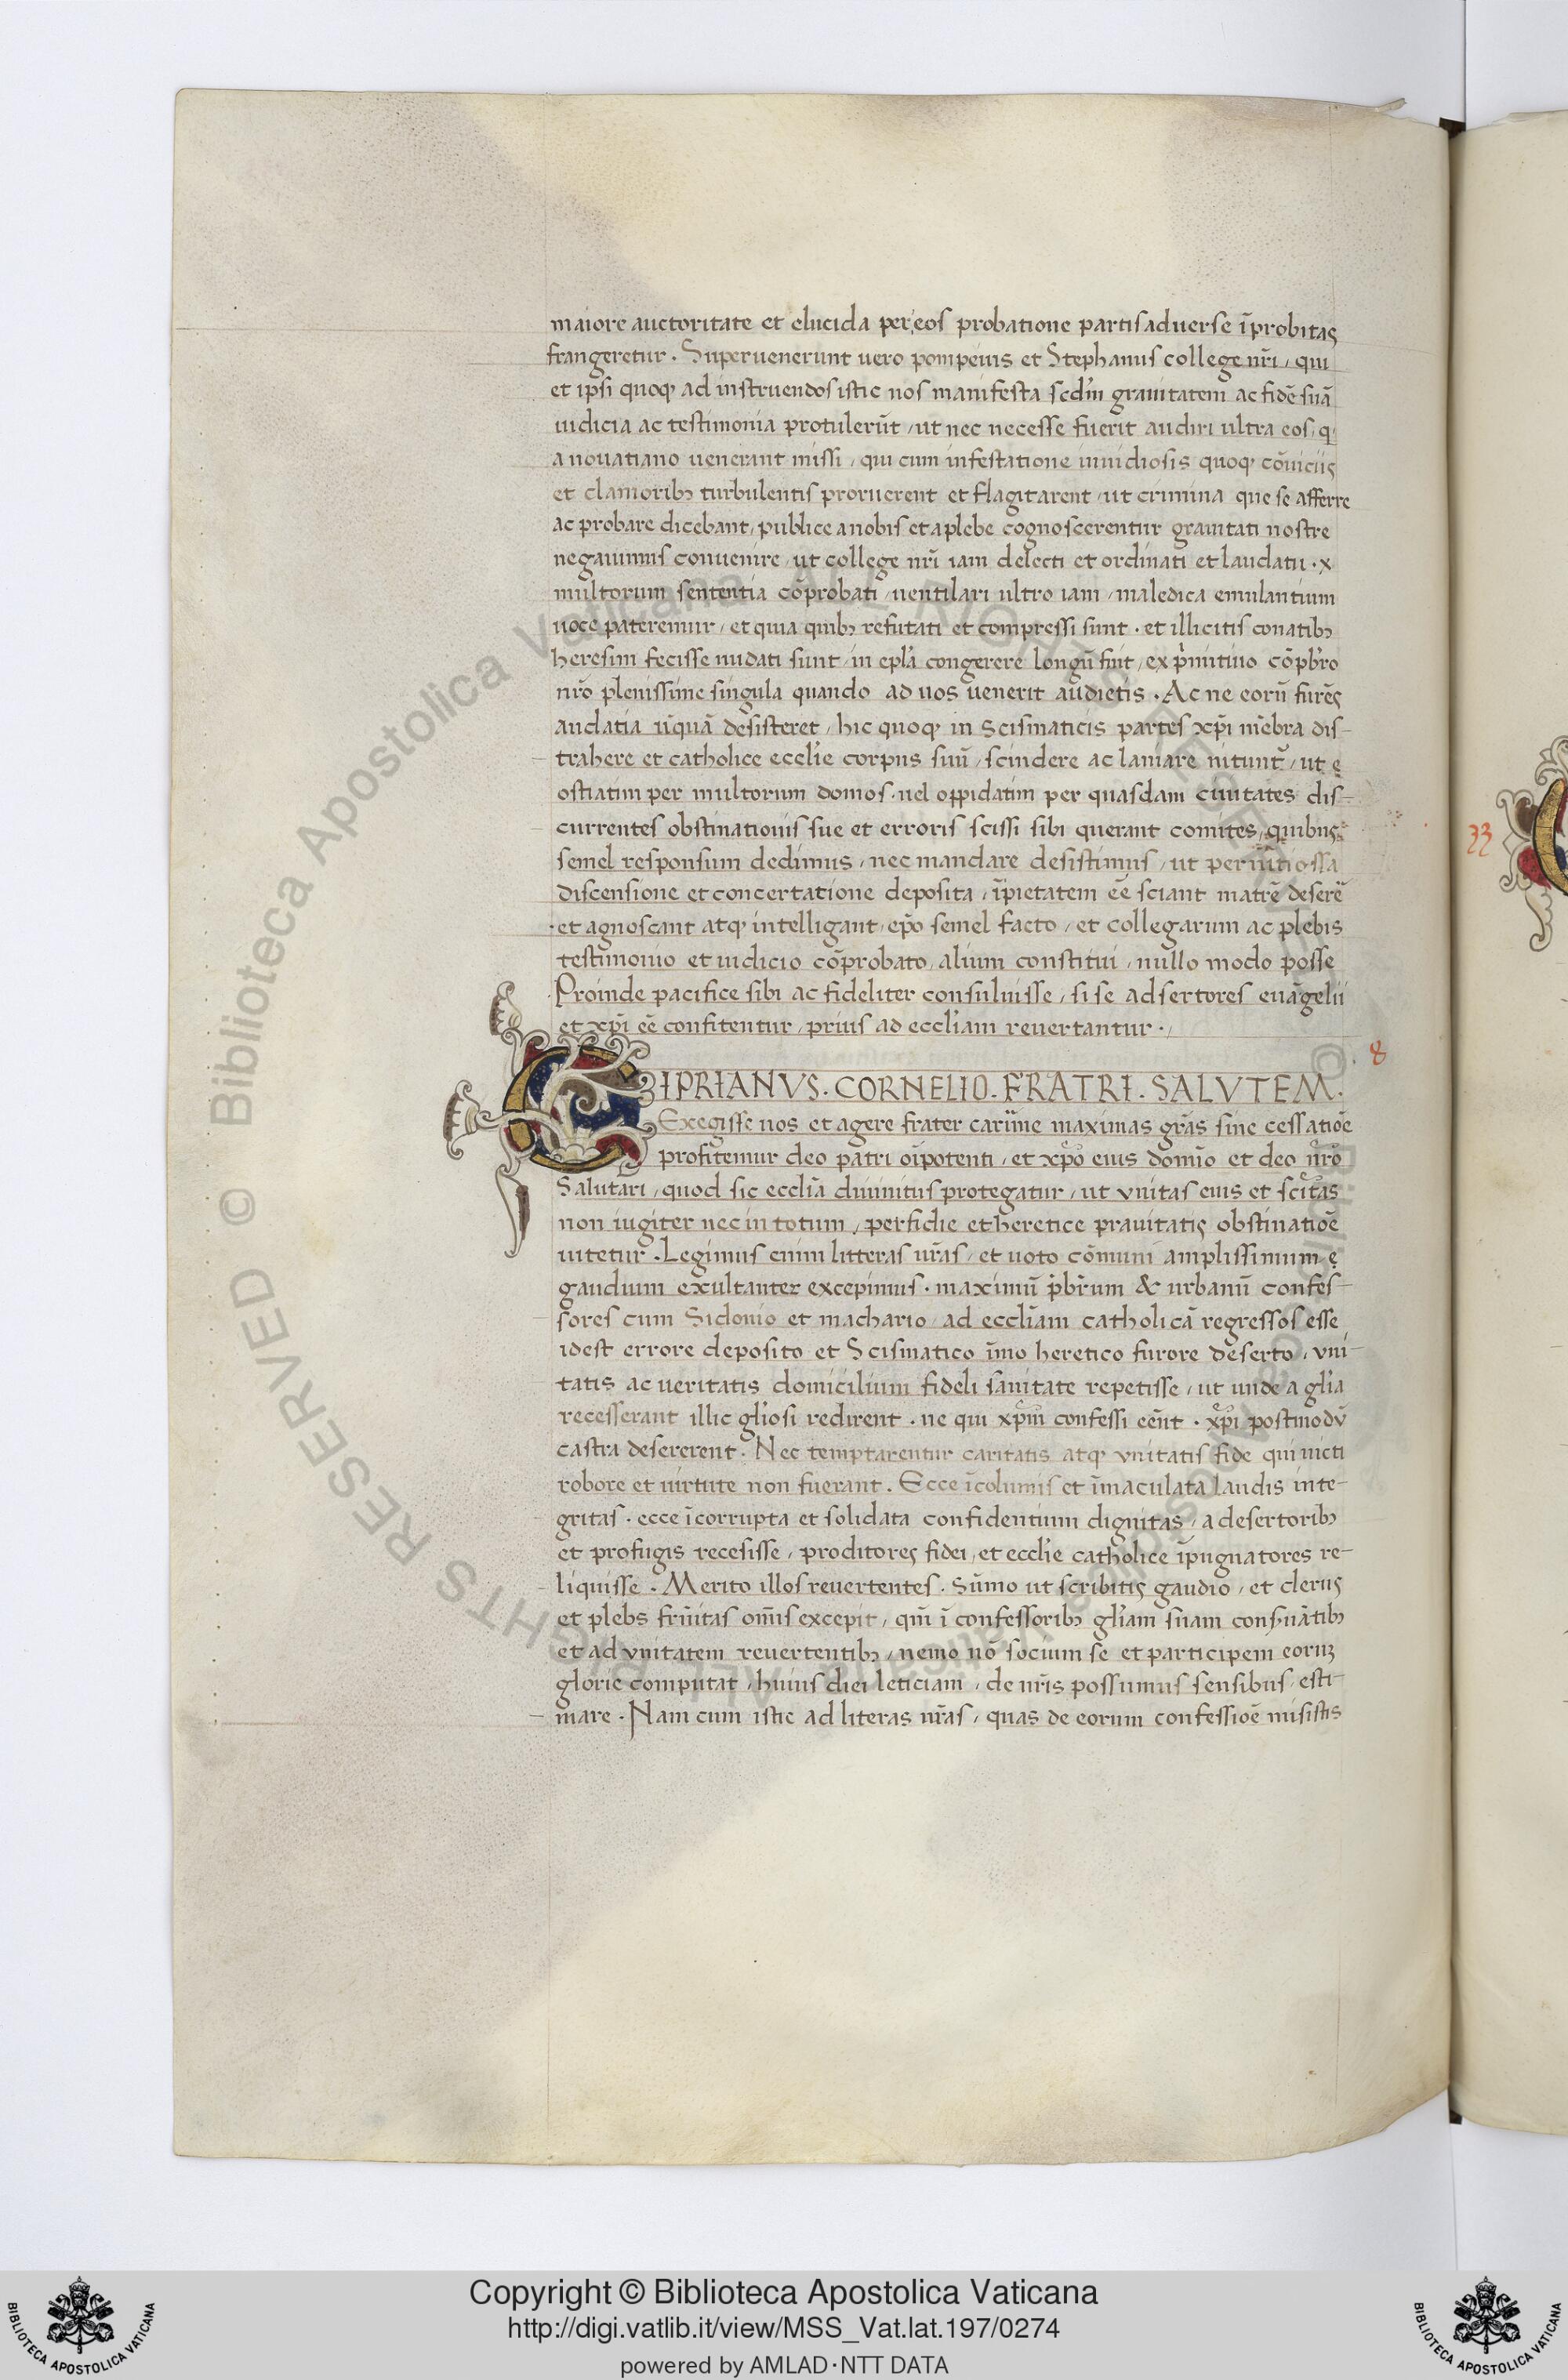 maiore auctoritate et elucida per eos probatione partis aduerse īprobitas
frangeretur . Superuenerunt uero pompeius et Stephanus college nr̄i , qui
et ipsi quoq; ad instruendos istic nos manifesta scd̄m grauitatem ac fidē suā
iudicia ac testimonia protulerūt , ut nec necesse fuerit audiri ultra eos , q
a nouatiano uenerant missi , qui cum infestatione inuidiosis quoq; cōuiciis
et clamorib; turbulentis proruerent et flagitarent , ut crimina que se afferre
ac probare dicebant , publice a nobis et a plebe cognoscerentur grauitati nostre
negauimus conuenire , ut college nr̄i iam delecti et ordinati et laudati . x
multorum sententia cōprobati , uentilari ultro iam , maledica emulantium
uoce pateremur , et quia quib; refutati et compressi sunt . et illicitis conatib;
heresim fecisse nudati sunt , in epl̄a congerere longū fuit , ex p̄mitiuo cōpbr̄o
nr̄o plenissime singula quando ad uos uenerit audietis . Ac ne eorū furēs
audatia ūquā desisteret , hic quoq; in Scismaticis partes xp̄i mēbra dis-
trahere et catholice eccl̄ie corpus suū , scindere ac laniare nitunt̄ , ut ę
ostiatim per multorum domos . uel oppidatim per quasdam ciuitates dis-
currentes obstinationis sue et erroris scissi sibi querant comites , quibus
semel responsum dedimus , nec mandare desistimus , ut pernitiossa
discensione et concertatione deposita , īpietatem eē sciant matrē deserē
et agnoscant atq; intelligant , ep̄o semel facto , et collegarum ac plebis
testimonio et iudicio cōprobato , alium constitui , nullo modo posse
Proinde pacifice sibi ac fideliter consuluisse , si se adsertores euāgelii
et xp̄i eē confitentur , prius ad eccl̄iam reuertantur .
8
CIPRIANVS . CORNELIO . FRATRI . SALVTEM .
Exegisse nos et agere frater carīme maximas gr̄as sine cessatiōe
profitemur deo patri oīpotenti , et xp̄o eius domīo et deo nr̄o
Salutari , quod sic eccl̄ia diuinitus protegatur , ut vnitas eius et sc̄itas
non iugiter nec in totum , perfidie et heretice prauitatis obstinatiōe
uitetur . Legimus enim litteras ur̄as , et uoto cōmuni amplissimum ę
gaudium exultanter excepimus . maximū p̄br̄um & urbanū confes-
sores cum Sidonio et machario , ad eccl̄iam catholicā regressos esse
idest errore deposito et Scismatico īmo heretico furore deserto , vni-
tatis ac ueritatis domicilium fideli sanitate repetisse , ut unde a gl̄ia
recesserant illic gl̄iosi redirent . ne qui xp̄m confessi eēnt . xp̄i postmodū
castra desererent . Nec temptarentur caritatis atq; vnitatis fide qui uicti
robore et uirtute non fuerant . Ecce īcolumis et īmaculata laudis inte-
gritas . ecce īcorrupta et solidata confidentium dignitas , a desertorib;
et profugis recesisse , proditores fidei , et eccl̄ie catholice īpugnatores re-
liquisse . Merito illos reuertentes . Sūmo ut scribitis gaudio , et clerus
et plebs fr̄nitas om̄is excepit , qm̄ ī confessorib; gl̄iam suam conseruātib;
et ad vnitatem reuertentib; , nemo nō socium se et participem eorum
glorie computat , huius diei leticiam , de nr̄is possumus sensibus , esti-
mare . Nam cum istic ad literas ur̄as , quas de eorum confessiōe misistis
33
Copyright © Biblioteca Apostolica Vaticana
http://digi.vatlib.it/view/MSS_Vat.lat.197/0274
powered by AMLAD·NTT DATA
BIBLIOTECA APOSTOLICA VATICANA
BIBLIOTECA APOSTOLICA VATICANA